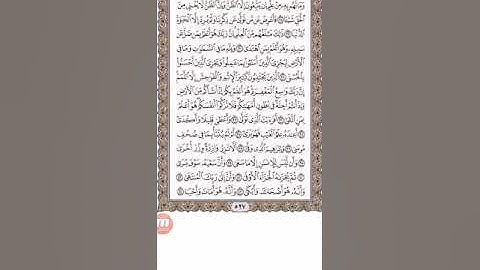 وَمَا لَهُم بِهِۦ مِنْ عِلْمٍ إِن يَتَّبِعُونَ إِلَّا ٱلظَّنَّ وَإِنَّ ٱلظَّنَّ لَا يُغْنِي مِنَ
ٱلْحَقِّ شَيْـًٔا ۝ فَأَعْرِضْ عَن مَّن تَوَلَّىٰ عَن ذِكْرِنَا وَلَمْ يُرِدْ إِلَّا ٱلْحَيَوٰةَ
ٱلدُّنْيَا ۝ ذَٰلِكَ مَبْلَغُهُم مِّنَ ٱلْعِلْمِ إِنَّ رَبَّكَ هُوَ أَعْلَمُ بِمَن ضَلَّ عَن
سَبِيلِهِۦ وَهُوَ أَعْلَمُ بِمَنِ ٱهْتَدَىٰ ۝ وَلِلَّهِ مَا فِي ٱلسَّمَٰوَٰتِ وَمَا فِي
ٱلْأَرْضِ لِيَجْزِيَ ٱلَّذِينَ أَسَٰٓـُٔوا۟ بِمَا عَمِلُوا۟ وَيَجْزِيَ ٱلَّذِينَ أَحْسَنُوا۟
بِٱلْحُسْنَى ۝ ٱلَّذِينَ يَجْتَنِبُونَ كَبَٰٓئِرَ ٱلْإِثْمِ وَٱلْفَوَٰحِشَ إِلَّا ٱللَّمَمَ
إِنَّ رَبَّكَ وَٰسِعُ ٱلْمَغْفِرَةِ هُوَ أَعْلَمُ بِكُمْ إِذْ أَنشَأَكُم مِّنَ ٱلْأَرْضِ
وَإِذْ أَنتُمْ أَجِنَّةٌ فِي بُطُونِ أُمَّهَٰتِكُمْ فَلَا تُزَكُّوٓا۟ أَنفُسَكُمْ هُوَ أَعْلَمُ
بِمَنِ ٱتَّقَىٰٓ ۝ أَفَرَءَيْتَ ٱلَّذِي تَوَلَّىٰ ۝ وَأَعْطَىٰ قَلِيلًا وَأَكْدَىٰٓ ۝
أَعِندَهُۥ عِلْمُ ٱلْغَيْبِ فَهُوَ يَرَىٰٓ ۝ أَمْ لَمْ يُنَبَّأْ بِمَا فِي صُحُفِ
مُوسَىٰ ۝ وَإِبْرَٰهِيمَ ٱلَّذِي وَفَّىٰٓ ۝ أَلَّا تَزِرُ وَازِرَةٌ وِزْرَ أُخْرَىٰ ۝
وَأَن لَّيْسَ لِلْإِنسَٰنِ إِلَّا مَا سَعَىٰ ۝ وَأَنَّ سَعْيَهُۥ سَوْفَ يُرَىٰ ۝
ثُمَّ يُجْزَىٰهُ ٱلْجَزَآءَ ٱلْأَوْفَىٰ ۝ وَأَنَّ إِلَىٰ رَبِّكَ ٱلْمُنتَهَىٰ ۝
وَأَنَّهُۥ هُوَ أَضْحَكَ وَأَبْكَىٰ ۝ وَأَنَّهُۥ هُوَ أَمَاتَ وَأَحْيَا ۝
٥٢٧